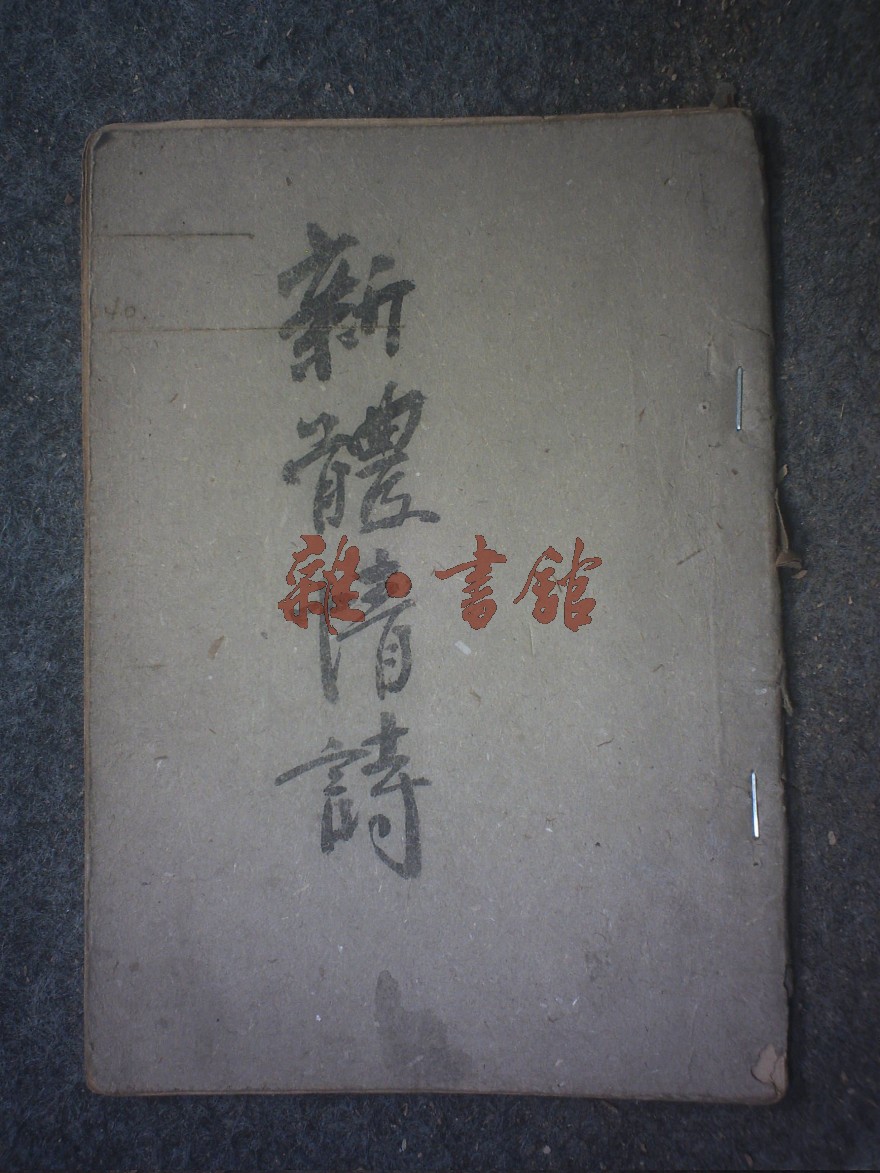 新體情詩
雜·書館
40.